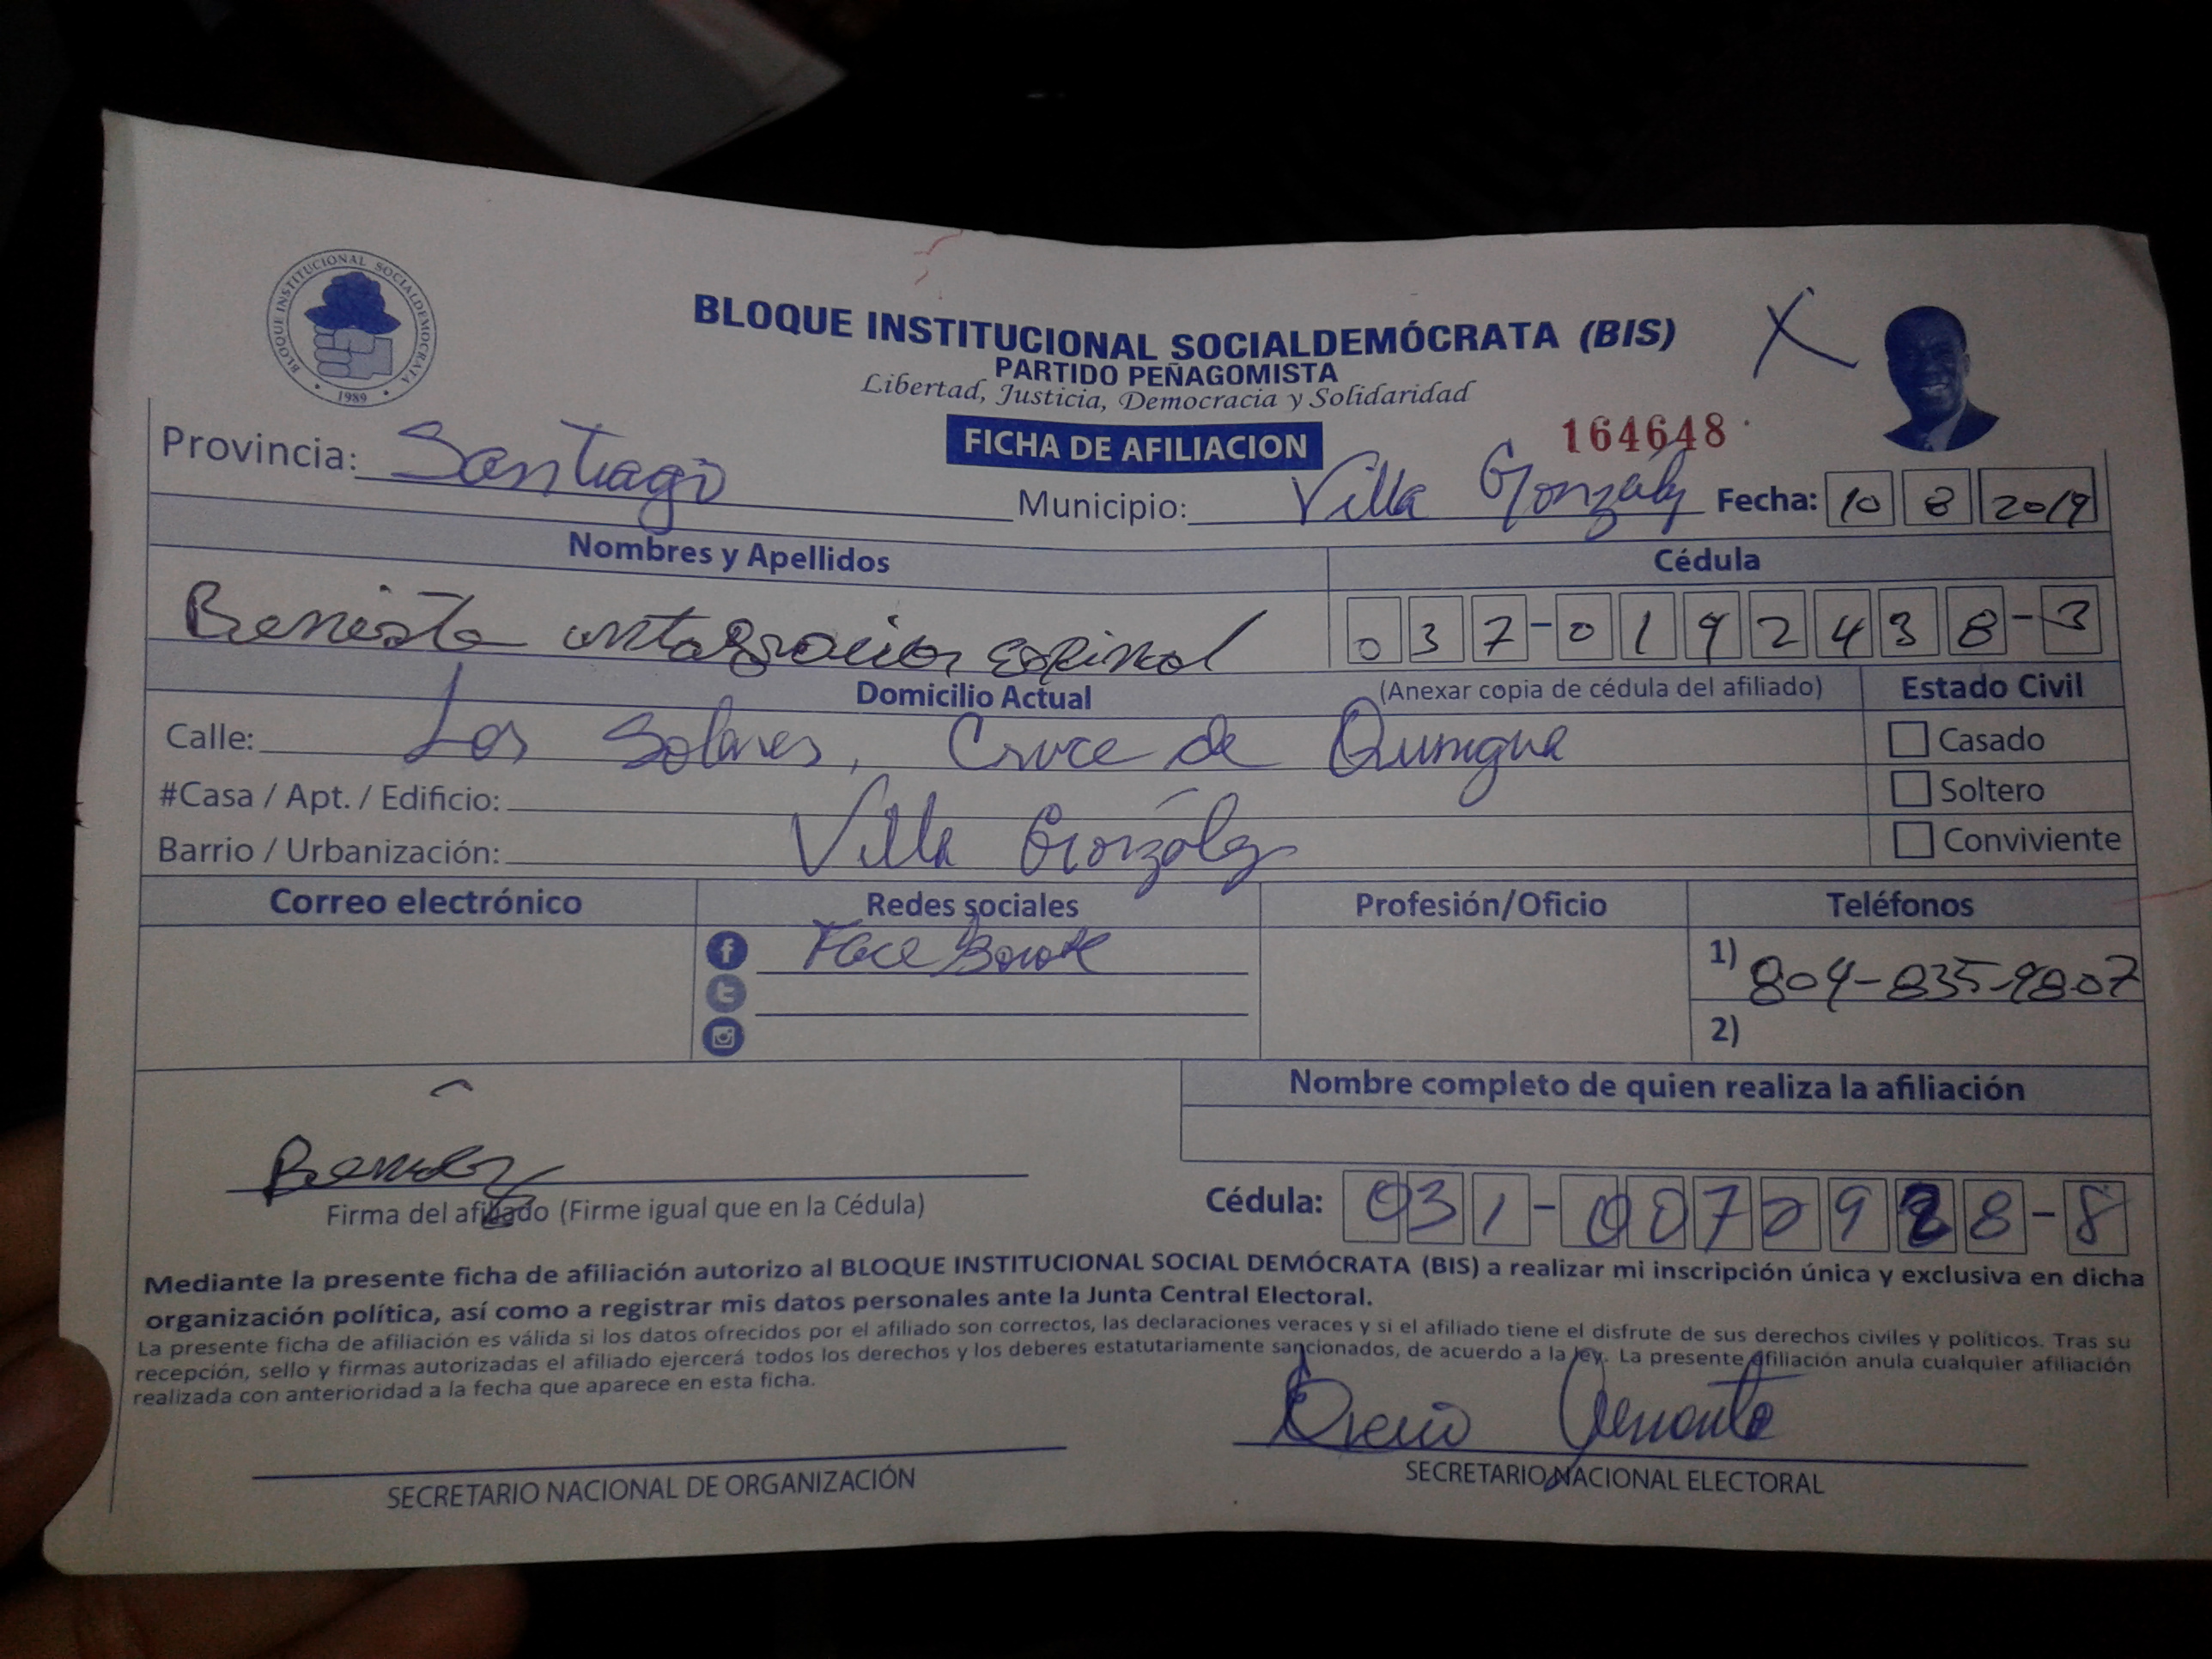 BLOQUE INSTITUCIONAL SOCIALDEMOCRATA
1989
BLOQUE INSTITUCIONAL SOCIALDEMÓCRATA (BIS)
PARTIDO PEÑAGOMISTA
Libertad, Justicia, Democracia y Solidaridad
X
FICHA DE AFILIACION
164648
Provincia: Santiago
Municipio: Villa Gonzalez Fecha: 10 8 2019
Nombres y Apellidos Cédula
Espinal 037-0192438-3
Domicilio Actual (Anexar copia de cédula del afiliado) Estado Civil
Calle: Los Solares, Cruce de Quinigua Casado
#Casa / Apt. / Edificio: Soltero
Barrio / Urbanización: Villa González Conviviente
Correo electrónico Redes sociales Profesión/Oficio Teléfonos
Face Book 1) 809-835-9807
2)
Nombre completo de quien realiza la afiliación
Firma del afiliado (Firme igual que en la Cédula)
Cédula: 031-0072988-8
Mediante la presente ficha de afiliación autorizo al BLOQUE INSTITUCIONAL SOCIAL DEMÓCRATA (BIS) a realizar mi inscripción única y exclusiva en dicha
organización política, así como a registrar mis datos personales ante la Junta Central Electoral.
La presente ficha de afiliación es válida si los datos ofrecidos por el afiliado son correctos, las declaraciones veraces y si el afiliado tiene el disfrute de sus derechos civiles y políticos. Tras su
recepción, sello y firmas autorizadas el afiliado ejercerá todos los derechos y los deberes estatutariamente sancionados, de acuerdo a la ley. La presente afiliación anula cualquier afiliación
realizada con anterioridad a la fecha que aparece en esta ficha.
SECRETARIO NACIONAL DE ORGANIZACIÓN
SECRETARIO NACIONAL ELECTORAL